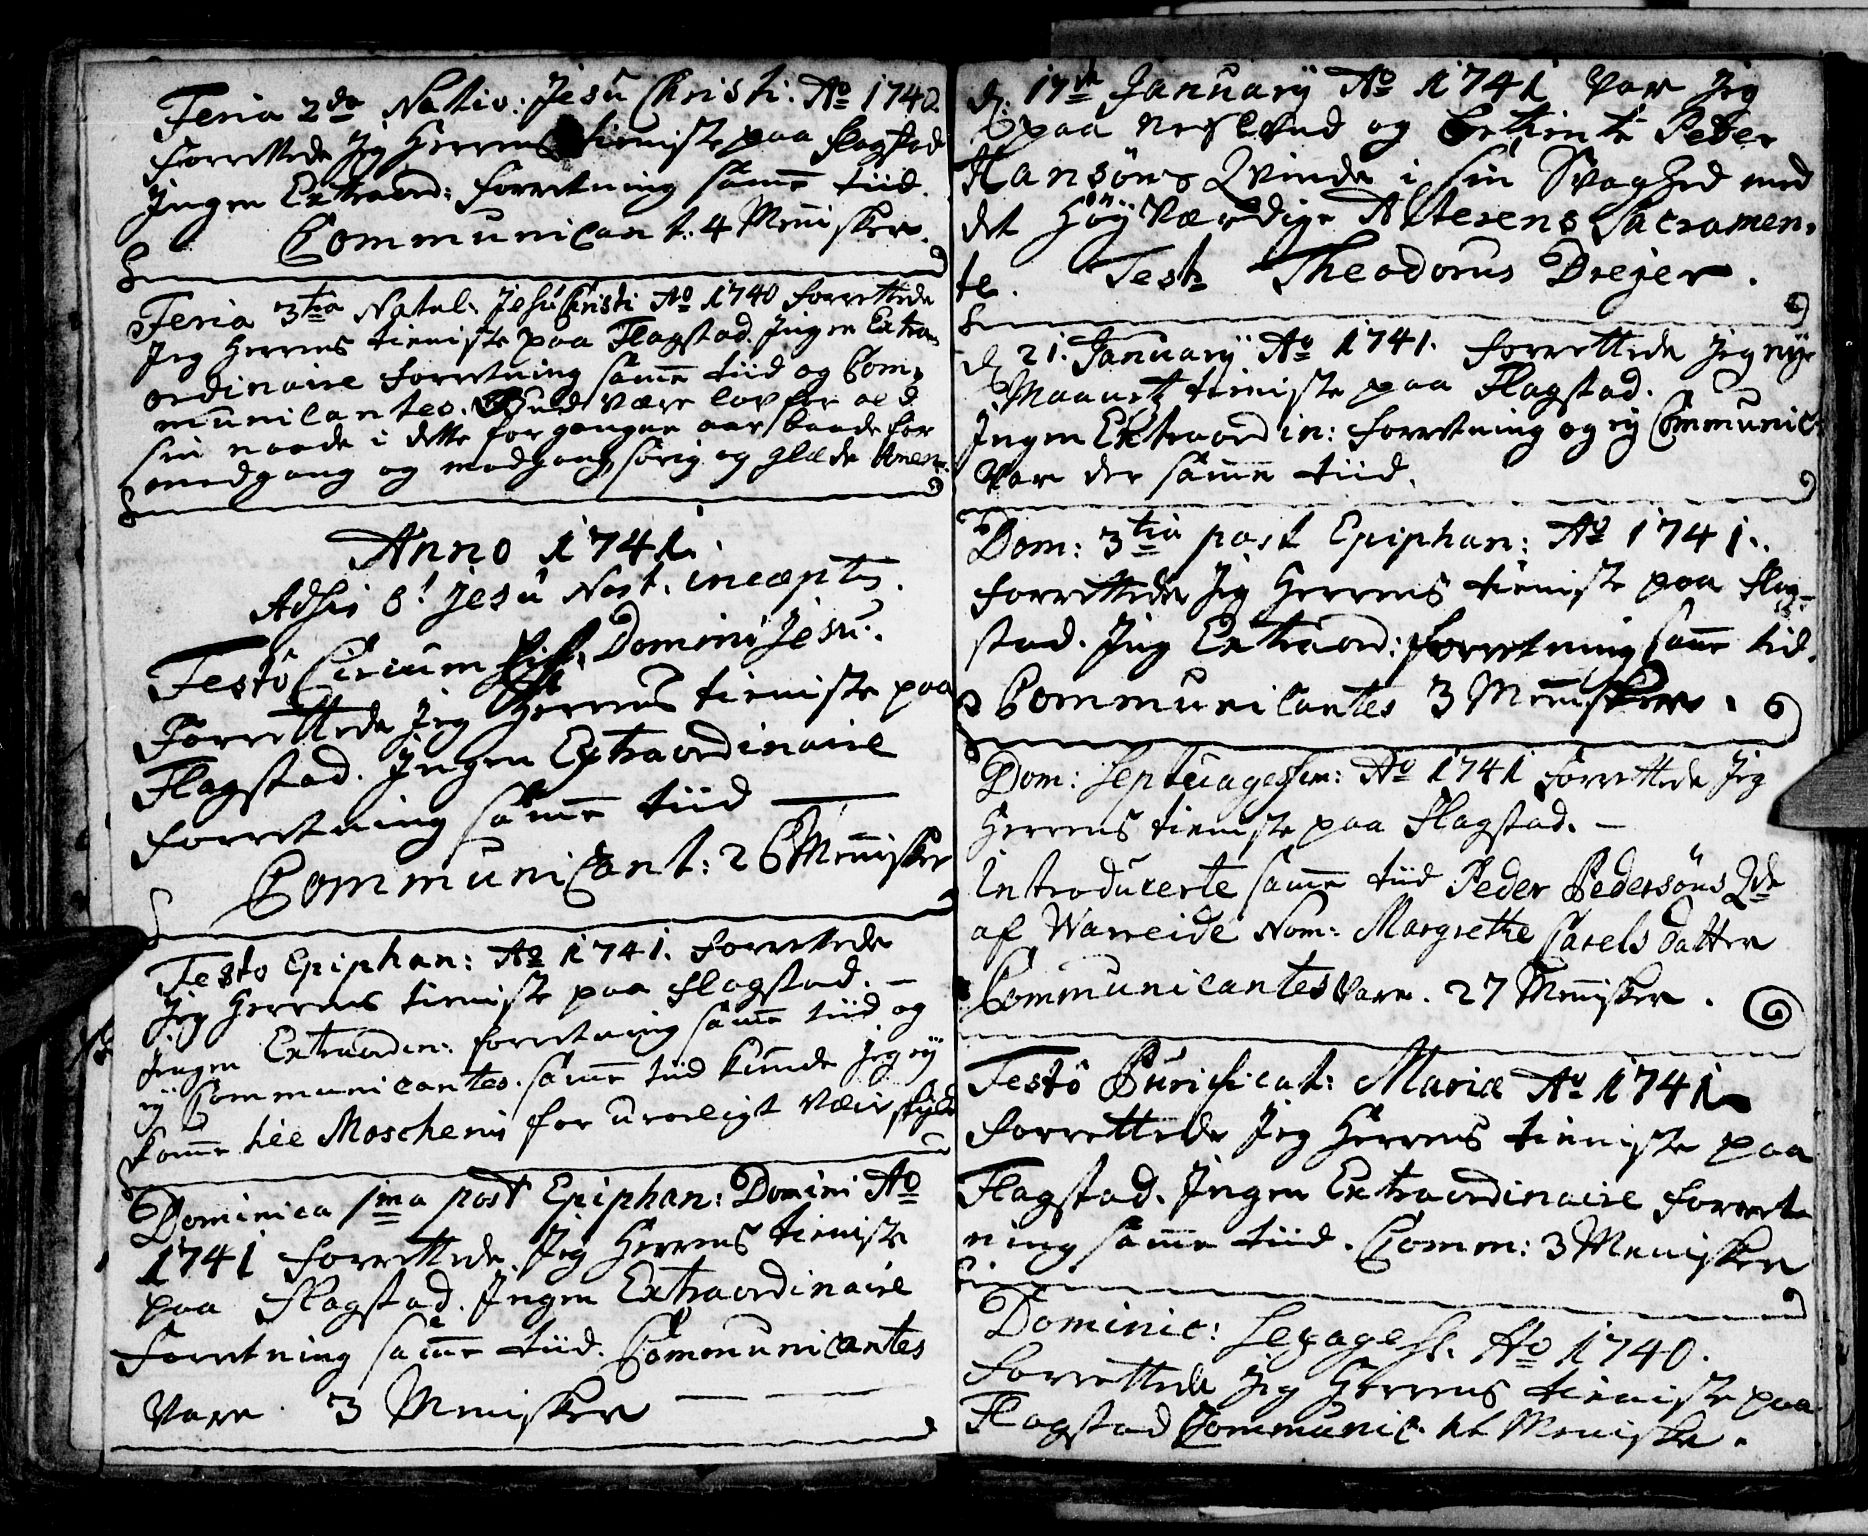 Feria 2da Nativ: Jesu Christi. Ao 1740
forrettede Jeg Herrens tieniste paa Flagstad
Ingen Extraord: forretning samme tiid.
Communicant: 4 Mennisker.
Feria 3tia Natal. Jesu Christi Ao 1740 forrettede
Jeg Herrens tieniste paa Flagstad. Ingen Extra
ordinaire forretning samme tiid og Com,
municantes. Gud være lov for all
sin naade i dette forgangne aar baade for
medgang og modgang, sorrig og glæde Amen.
Anno 1741.
Jesu Nost. inceptus.
Festo Circumcis. Domini Jesu.
Forrettede Jeg Herrens tieniste paa
Flagstad. Ingen Extraordinaire
forretning samme tiid
Communicant: 26 Mennisker
Festo Epiphan: Ao 1741. forrettede
Jeg Herrens tieniste paa Flagstad.
Ingen Extraordin: forretning samme tiid og
ej Communicantes. samme tiid kunde Jeg ej
komme til Moschenes for uroeligt Veir skyld
Dominica 1ma post Epiphan: Domini Ao
1741 forrettede Jeg Herrens tieniste
paa Flagstad. Ingen Extraordinaire
Forretning samme tiid. Communicantes
Vare 3 Mennisker
d. 17de Januarij Ao 1741 Var Jeg
paa Nesland og betiente Peder
Hansøns Qvinde i sin Svaghed med
det Høyværdige Alterens Sacramen,
te. Test Theodorus Dreyer.
d 21. Januarij Ao 1741. forrettede Jeg nye
Maanetz tieniste paa Flagstad.
Ingen Extraordin: forretning og ej Communic:
Var der samme tiid.
Dom: 3tia post Epiphan: Ao 1741.
forrettede Jeg Herrens tieniste paa Flag-
stad. Ing Extraord: forretning samme tid.
Communicantes 3 Mennisker.
Dom: Septuagesim: Ao 1741 forrettede Jeg
Herrens tieniste paa Flagstad.
Introducerte samme tiid Peder Pedersøns Qde
af Warreide Nom: Margrethe Carels datter
Communicantes Vare. 27 Mennisker.
Festo Purificat: Mariæ Ao 1741
forrettede Jeg Herrens tieniste paa
Flagstad. Ingen Extraordinaire forret
ning samme tiid. Comm: 3 Mennisker
Dominic: Sexagess. Ao 1740.
forrettede Jeg Herrens tieniste paa
Flagstad Communic. Menniske.